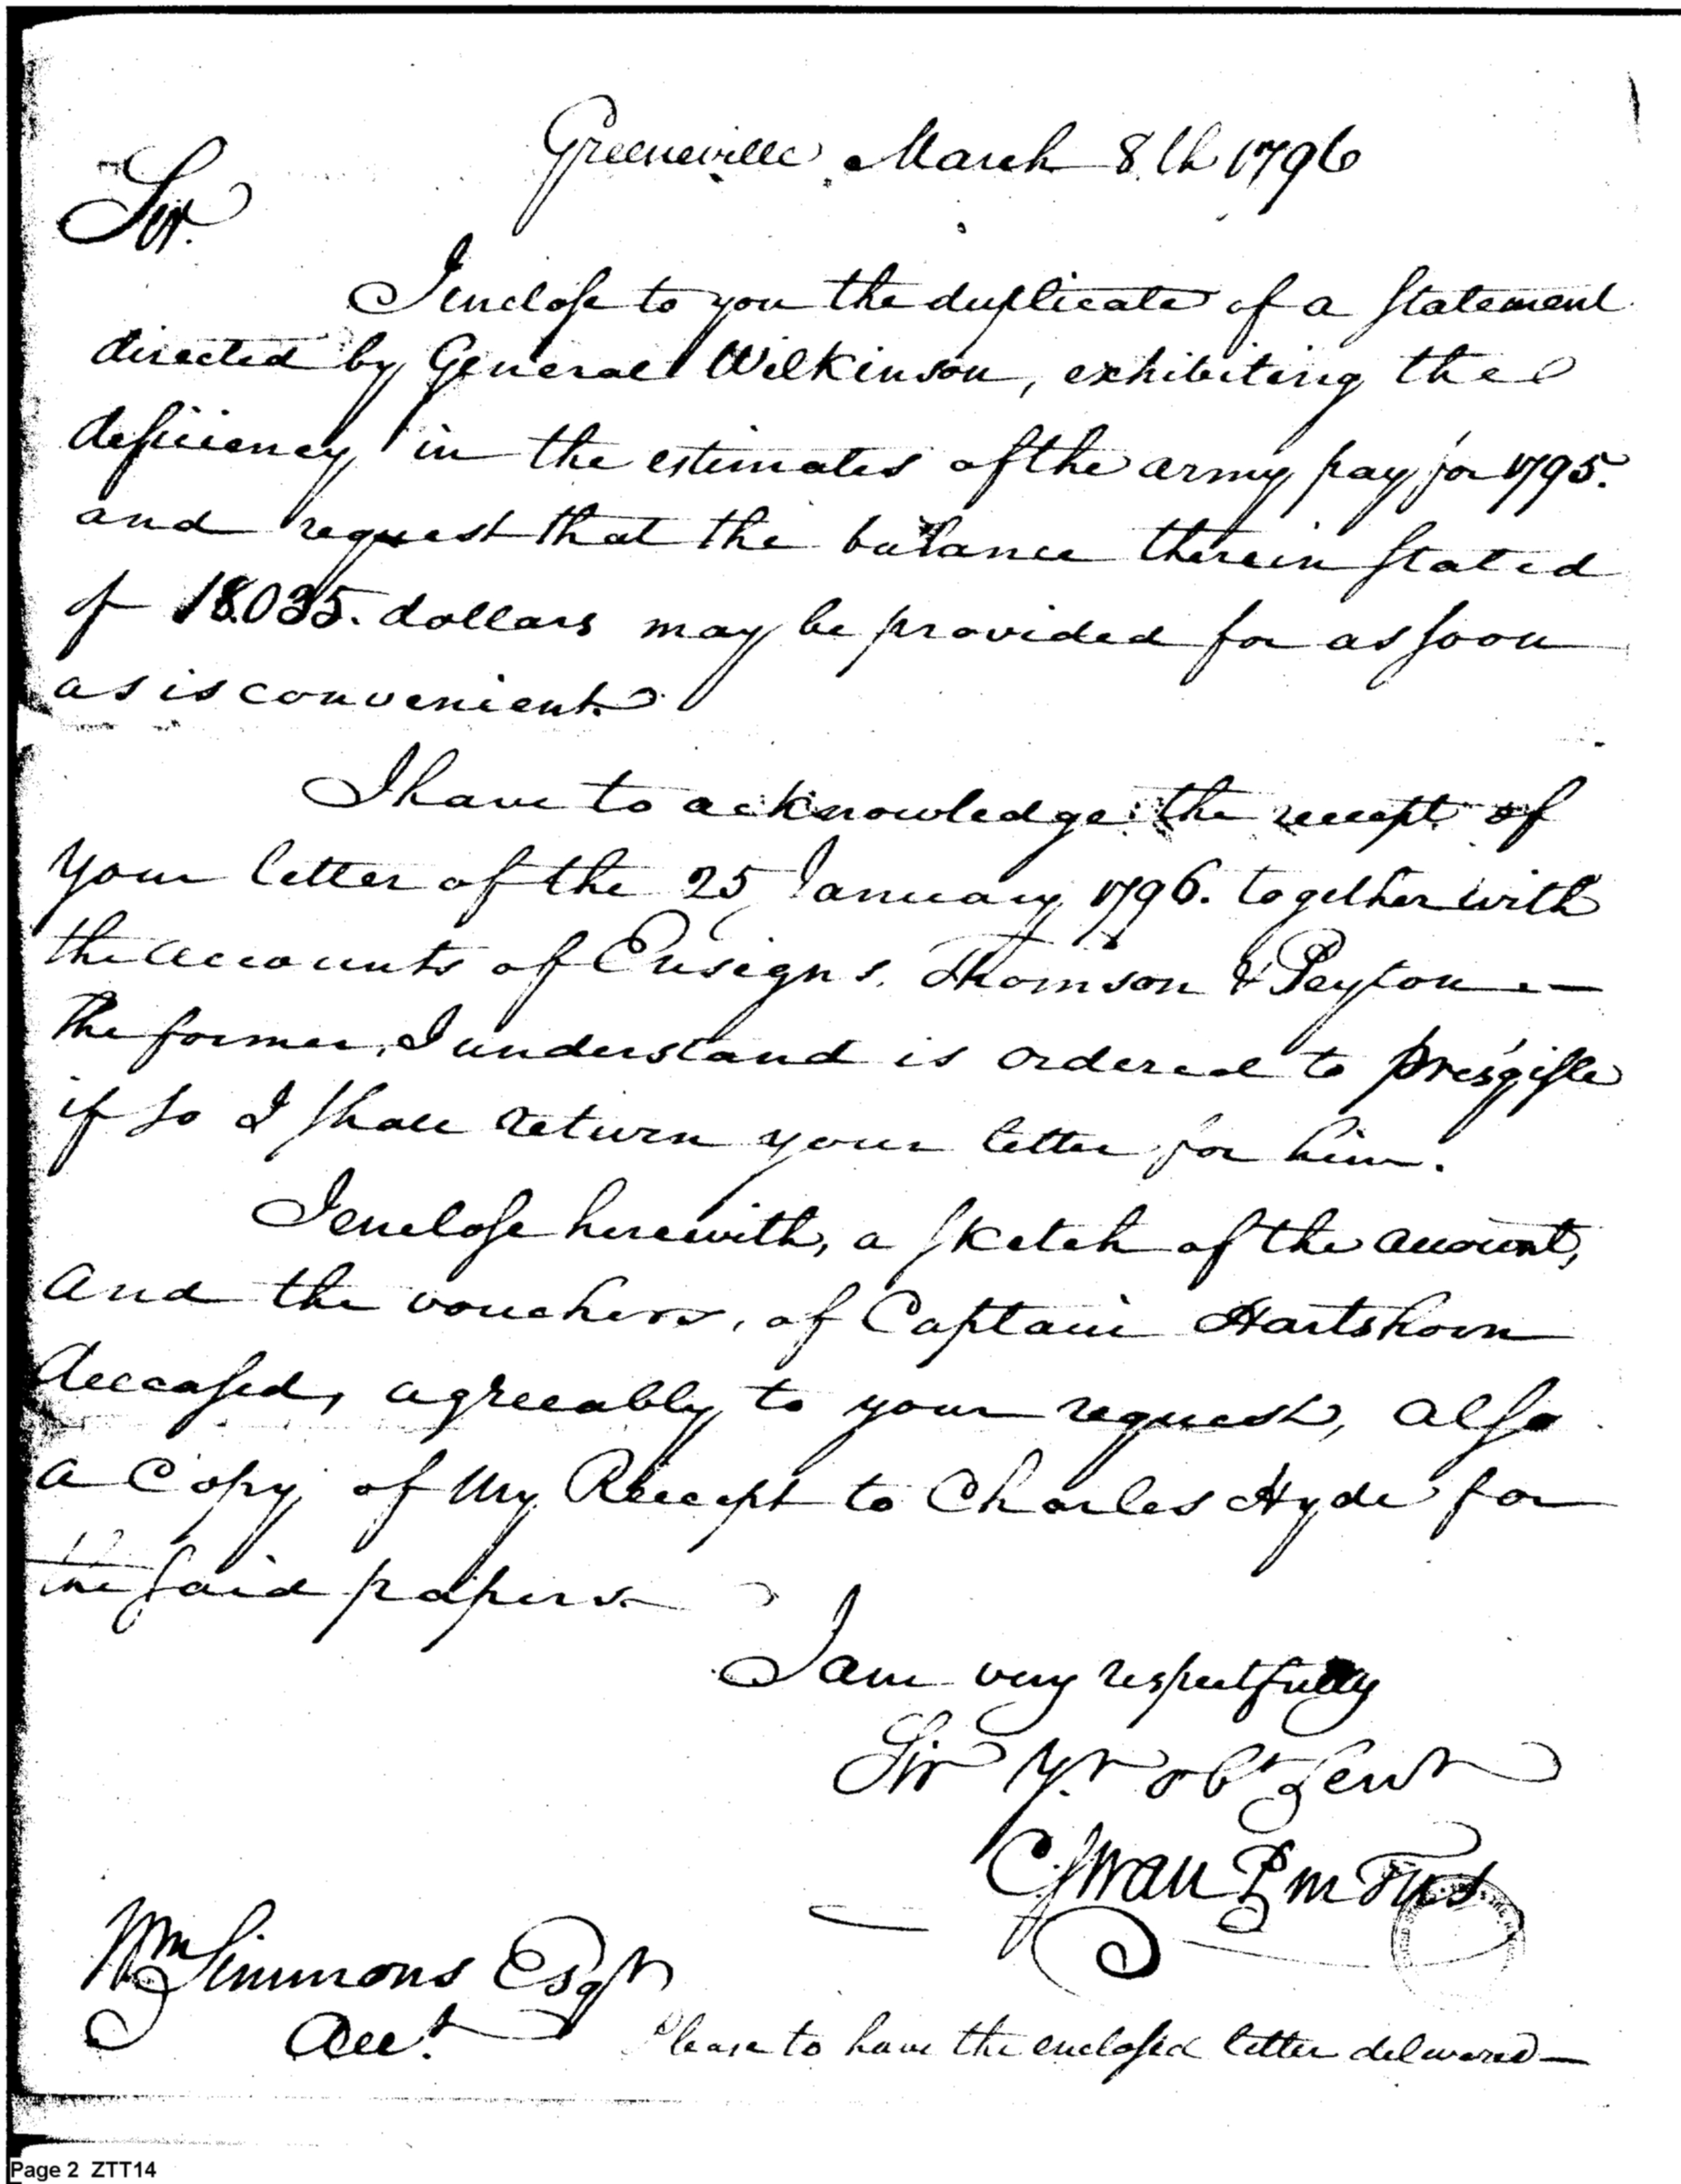 Greeneville, March 8th 1796
Sir.
I enclose to you the duplicate of a statement
directed by General Wilkinson, exhibiting the
deficiency in the estimates of the army pay for 1795.
and request that the balance therein stated
of 18.035. dollars may be provided for as soon
as is convenient.
I have to acknowledge the recept of
your letter of the 25 January 1796. together with
the accounts of Ensigns. Thomson & Peyton —
The former, I understand is ordered to presqisle
if so I shall return your letter for him.
I enclose herewith, a sketch of the account,
and the vouchers, of Captain Hartshorn
deceased, agreeably to your request, also
a Copy of My Recept to Charles Hyde for
the said papers
I am very respectfully
Sir Yr. obt Servt
C Swan P m Trs
Wm Simmons Esqr
Acct.
Please to have the enclosed letter delivered —
Page 2 ZTT14